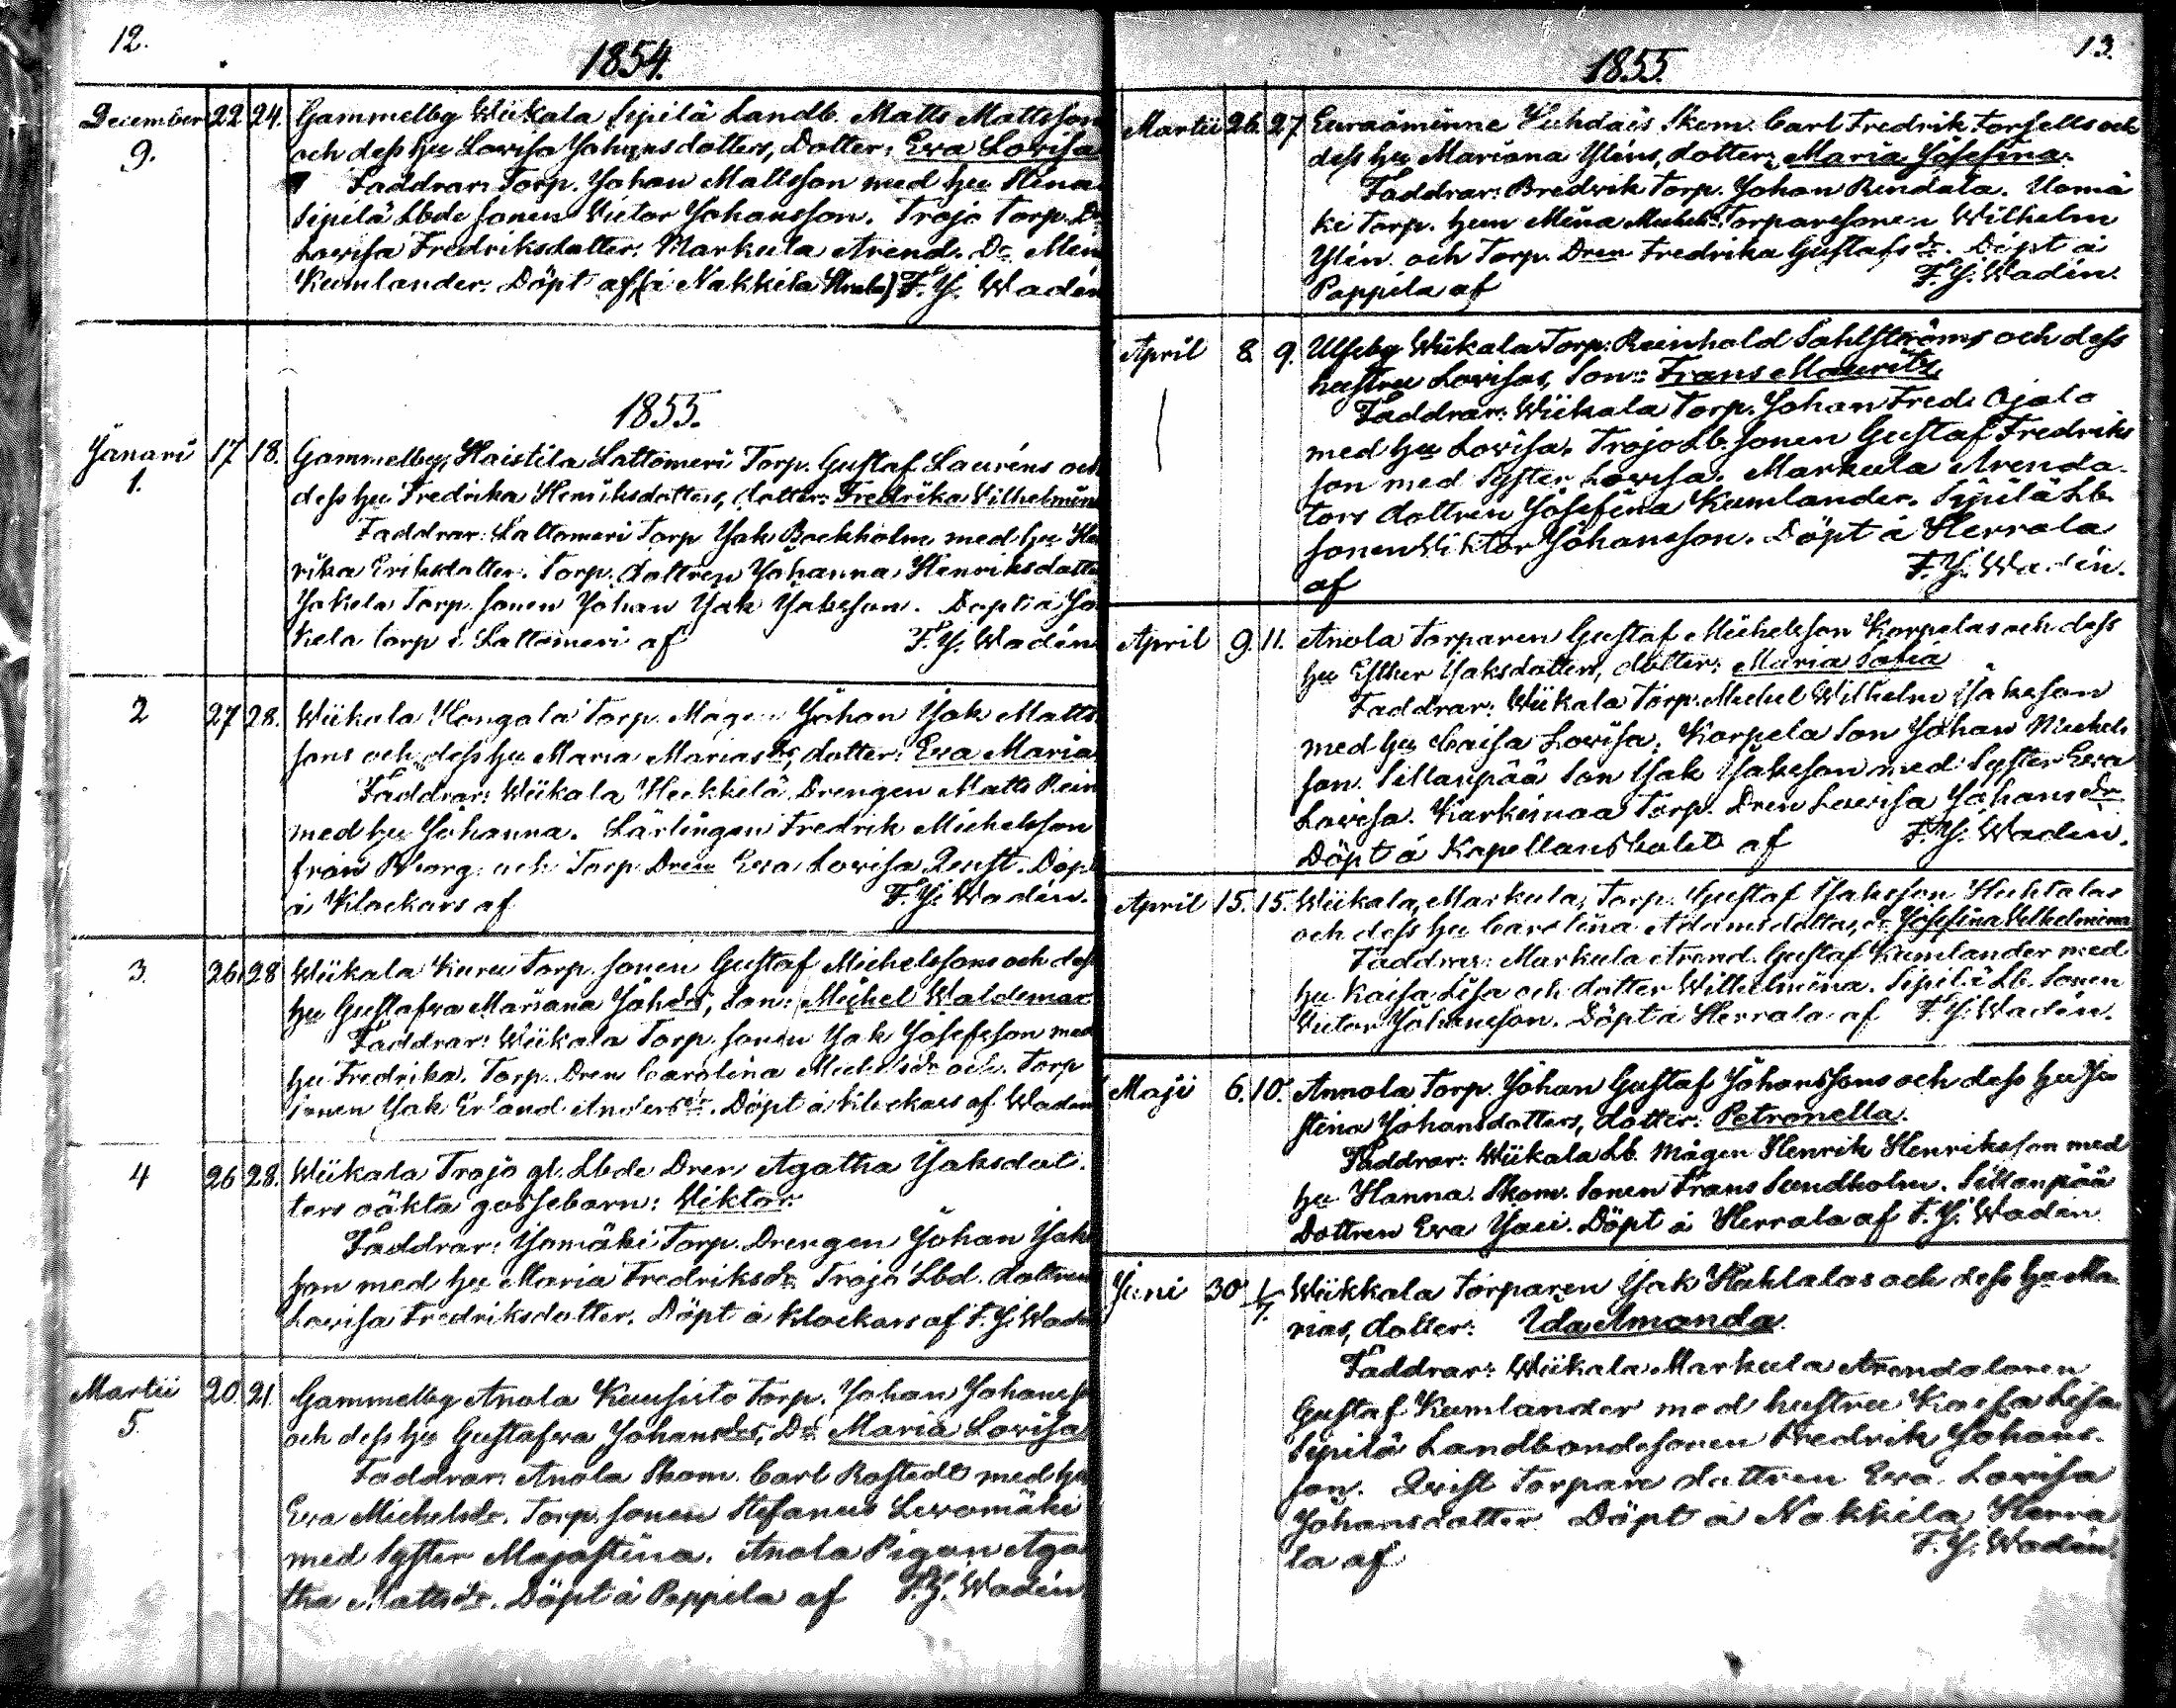 12.
1854.
December 22 24. Gammelby Wiikala Sipilä Landb. Matts Mattsson
9. och dess hu Lovisa Johansdotters, Dotter: Eva Lovisa
Faddrar: Torp. Johan Mattsson med hu Stina
Sipilä Lbde sonen Victor Johansson. Trojo Torp. Dr
Lovisa Fredriksdotter. Markula Arend. Dr
Kumlander. Döpt af (å Nakkila) F. J. Wadén
1855.
Januari 17 18. Gammelby, Haistila Lattomeri Torp. Gustaf Lauréns och
1. dess hu Fredrika Henriksdotters, dotter: Fredrika Vilhelmin
Faddrar: Lattomeri Torp Jak Backholm med hu
rika Eriksdotter. Torp. dottren Johanna Henriksdotte
Jakela Torp. sonen Johan Jak Jaksson. Döpt å Ja
kela torp i Lattomeri af F. J. Wadén
2 27 28. Wiikala Hongala Torp. Mågen Johan Jak Matts
sons och dess hu Maria Marias ds, dotter: Eva Maria
Faddrar: Wiikala Heikkilä Drengen Matts Rein
med hu Johanna. Lärlingen Fredrik Michelsson
från Bborg och Torp Dren Eva Lovisa Qvist. Döpt
å Klockars af F. J. Wadén.
3. 26 28 Wiikala Kuru Torp. sonen Gustaf Michelssons och dess
hu Gustafva Mariana Joh ds, son: Michel Waldemar
Faddrar: Wiikala Torp. sonen Jak Josefsson med
hu Fredrika. Torp. Dren Carolina Michelsdr och Torp
sonen Jak Erland Anderss. Döpt å Klockars af Wadén
4 26 28. Wiikala Trojo gl. Lbde Dren Agatha Jaksdot.
ters oäkta gossebarn: Viktor.
Faddrar: Jsomäki Torp. Drengen Johan Jak
son med hu Maria Fredriksdr Trojo Lbd. dottren
Lovisa Fredriksdotter. Döpt å Klockars af F. J. Wadén
Martii 20. 21. Gammelby Anola Kuusisto Torp. Johan Johanss
5. och dess hu Gustafva Johans ds, Dr Maria Lovisa
Faddrar: Anola Skom. Carl Rostedt med hu
Eva Michelsdr. Torp. sonen Stefanus Levomäki
med Syster Majastina. Anola Pigan Aga
tha Mattsdr. Döpt å Pappila af F. J. Wadén
13.
1855.
Martii 26. 27. Euraåminne Skom. Carl Fredrik Torsells och
dess hu Mariana Yléns, dotter: Maria Josefina.
Faddrar: Bredvik Torp. Johan Rendata. Uomä
ki Torp. hun Mina Michels. Torparesonen Wilhelm
Ylén och Torp. Dren Fredrika Gustafs dr. Döpt å
Pappila af F. J. Wadén.
April 8. 9. Ulfsby Wiikala Torp: Reinhold Sahlströms och dess
hustru Lovisas, Son: Frans Mauritz,
Faddrar: Wiikala Torp. Johan Fred. Ojala
med hu Lovisa, Trojo Lb. sonen Gustaf Fredriks
son med Syster Lovisa. Markula Arenda-
tors dottren Josefina Kumlander. Sipilä Lb.
sonen Viktor Johansson. Döpt å Herrala
af F. J. Wadén.
April 9. 11. Anola Torparen Gustaf Michelsson Korpelas och dess
hu Esther Jaksdotters, dotter: Maria Sofia
Faddrar: Wiikala Torp. Michel Wilhelm Jaksson
med hu Caisa Lovisa. Korpela Son Johan Michels
son. Sillanpää Son Jak Jaksson med Syster Eva
Lovisa. Karhinaa Torp. Dren Lovisa Johansdr
Döpt å Kapellansbolet af F. J. Wadén.
April 15. 15. Wiikala, Markula, Torp. Gustaf Jaksson Huhtalas
och dess hu Carolina Adamsdotters, dr Josefina Vilhelmina
Faddrar: Markula Arend. Gustaf Kumlander med
hu Kaisa Lisa och dotter Wilhelmina. Sipilä Lb. Sonen
Victor Johansson. Döpt å Herrala af F. J. Wadén.
Maji 6. 10. Annola Torp. Johan Gustaf Johanssons och dess hu Ju
stina Johansdotters, dotter: Petronella.
Faddrar: Wiikala Lb. Mågen Henrik Henriksson med
hu Hanna. Skom. Sonen Frans Sundholm. Sillanpää
Dottren Eva Jaci. Döpt å Herrala af F. J. Wadén
Juni 30 1/7. Wiikkala Torparen Jsak Huhtalas och dess hu Ma
rias, dotter: Ida Amanda.
Faddrar: Wiikala Markula Arendatoren
Gustaf Kumlander med hustru Kaisa Lisa
Sipilä Landbondesonen Fredrik Johans-
son. Qvist Torpare dottren Eva Lovisa
Johansdotter Döpt å Nakkila Herra
la af F. J. Wadén.